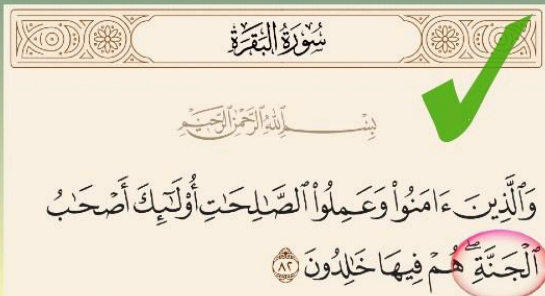 سُورَةُ الْبَقَرَةِ
بِسْمِ ٱللَّهِ ٱلرَّحْمَٰنِ ٱلرَّحِيمِ
وَٱلَّذِينَ ءَامَنُوا۟ وَعَمِلُوا۟ ٱلصَّـٰلِحَـٰتِ أُو۟لَـٰٓئِكَ أَصْحَـٰبُ
ٱلْجَنَّةِ ۖ هُمْ فِيهَا خَـٰلِدُونَ ۝٨٢